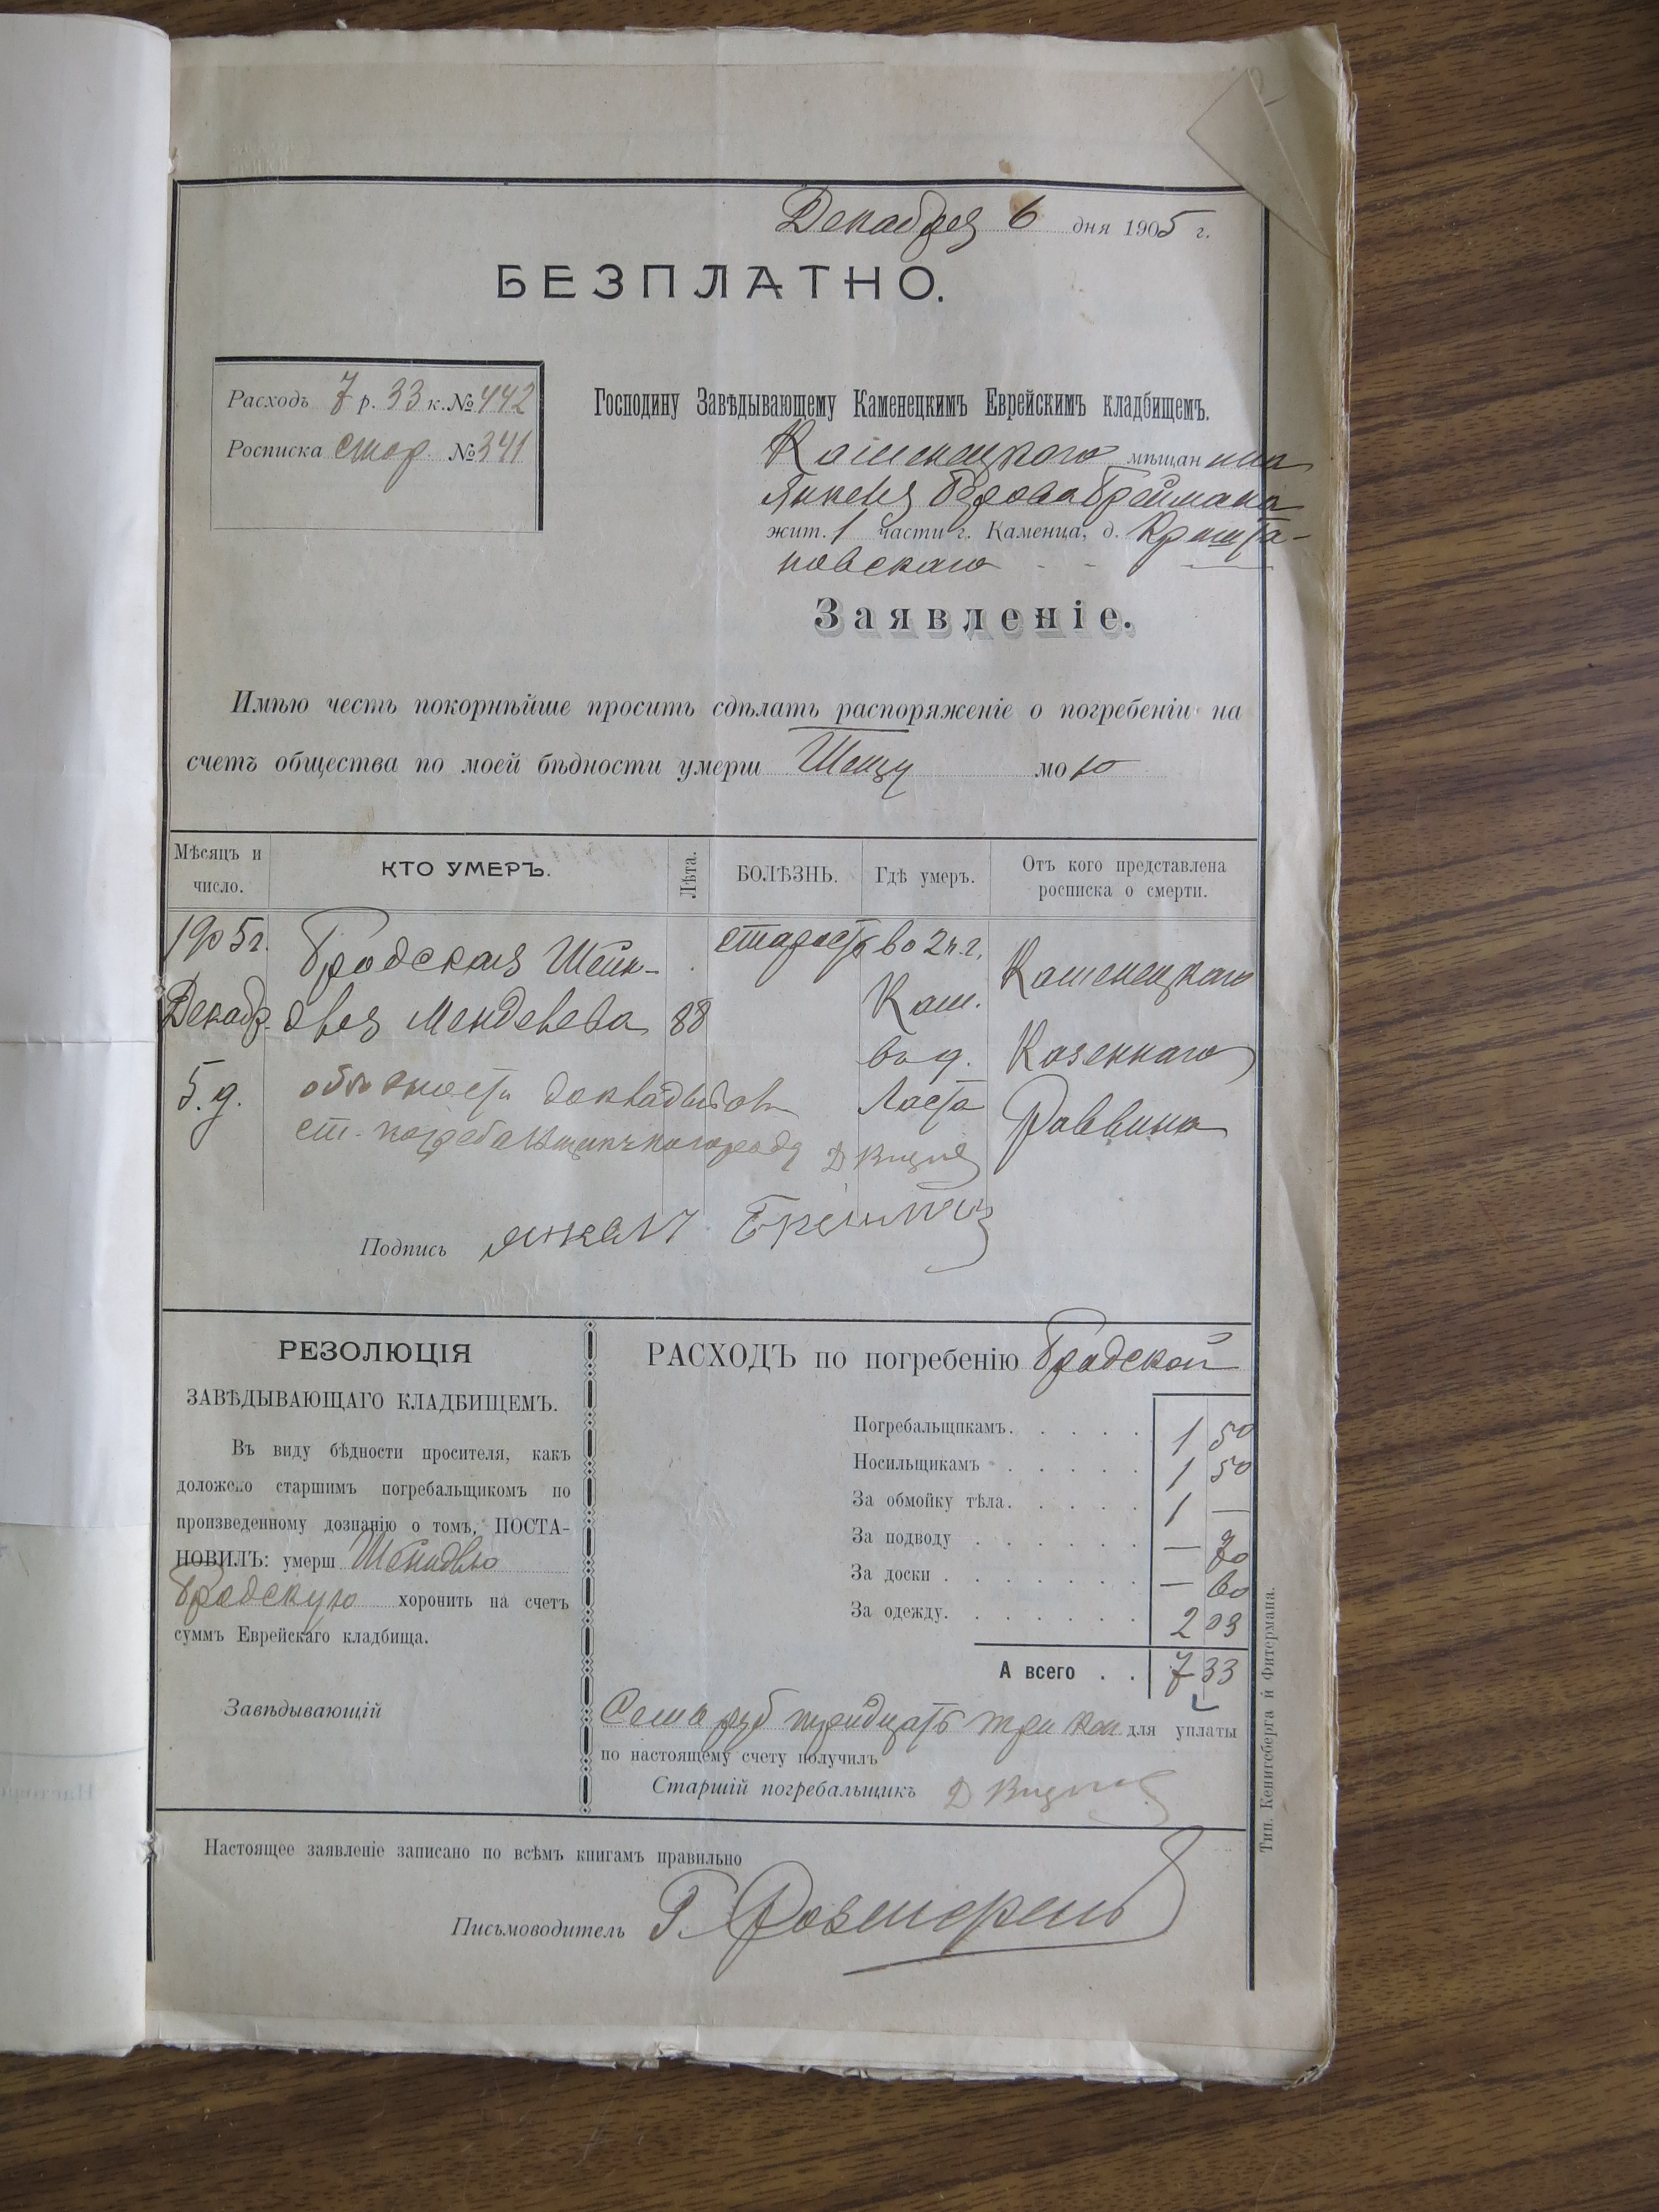 Декабря 6 дня 1905 г.
БЕЗПЛАТНО.
Расходъ 7 р. 33 к. № 442
Росписка стор. № 341
Господину Завѣдывающему Каменецкимъ Еврейскимъ кладбищемъ.
Каменецкого мѣщанина
Янкеля Берова Бреймана
жит. 1 части г. Каменца, д. Кришта-
новскаго
Заявленіе.
Имѣю честь покорнѣйше просить сдѣлать распоряженіе о погребеніи на
счетъ общества по моей бѣдности умерш Тещу мою
Мѣсяцъ и число.
КТО УМЕРЪ.
Лѣта.
БОЛѢЗНЬ.
Гдѣ умеръ.
Отъ кого представлена росписка о смерти.
1905 г. Бродская Шейн- старость во 2 ч. г. Каменецкаго
Декабр. двя Менделева 88 Кам. Казеннаго
5. д. въ д. Раввина
о бѣдности докладываетъ
ст. погребальщикъ Д
Подпись Янкель Брейман
РЕЗОЛЮЦІЯ
ЗАВѢДЫВАЮЩАГО КЛАДБИЩЕМЪ.
Въ виду бѣдности просителя, какъ
доложено старшимъ погребальщикомъ по
произведенному дознанію о томъ, ПОСТА-
НОВИЛЪ: умерш Шейндвю
Бродскую хоронить на счетъ
суммъ Еврейскаго кладбища.
Завѣдывающій
РАСХОДЪ по погребенію Бродской
Погребальщикамъ. 1 50
Носильщикамъ 1 50
За обмойку тѣла. 1 —
За подводу — 70
За доски — 60
За одежду. 2 03
А всего 7 33
Семь руб тридцать три коп для уплаты
по настоящему счету получилъ
Старшій погребальщикъ Д
Настоящее заявленіе записано по всѣмъ книгамъ правильно
Письмоводитель Г.
Тип. Кенигсберга и Фитермана.